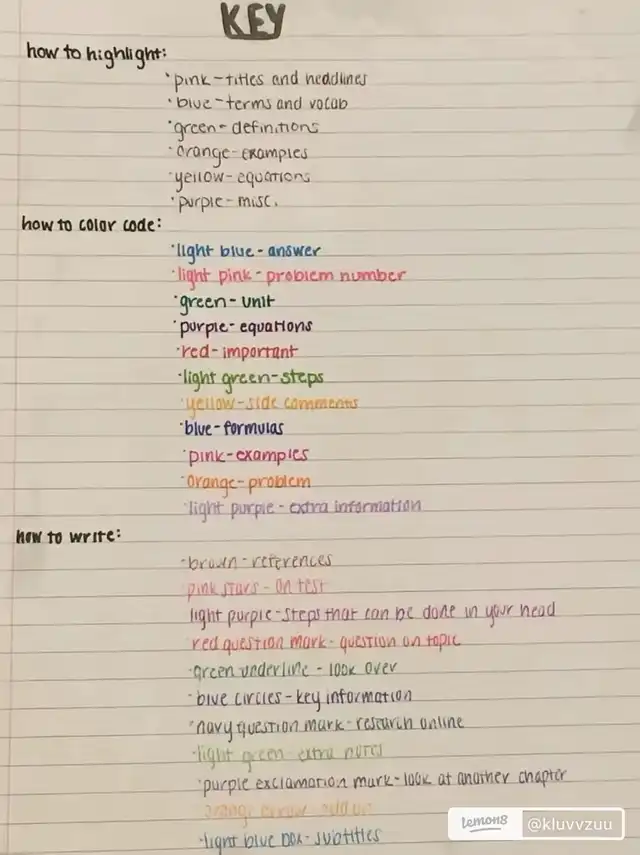 KEY
how to highlight:
•pink-titles and headlines
•blue-terms and vocab
•green-definitions
•orange-examples
•yellow-equations
•purple-misc.
how to color code:
•light blue-answer
•light pink-problem number
•green-unit
•purple-equations
•red-important
•light green-steps
•yellow-side comments
•blue-formulas
•pink-examples
•orange-problem
•light purple-extra information
how to write:
-brown-references
pink stars-on test
light purple-steps that can be done in your head
red question mark-question on topic
-green underline-look over
-blue circles-key information
•navy question mark-research online
-light green-extra notes
•purple exclamation mark-look at another chapter
orange arrow-add on
-light blue box-subtitles
lemon8 @kluvvzuu